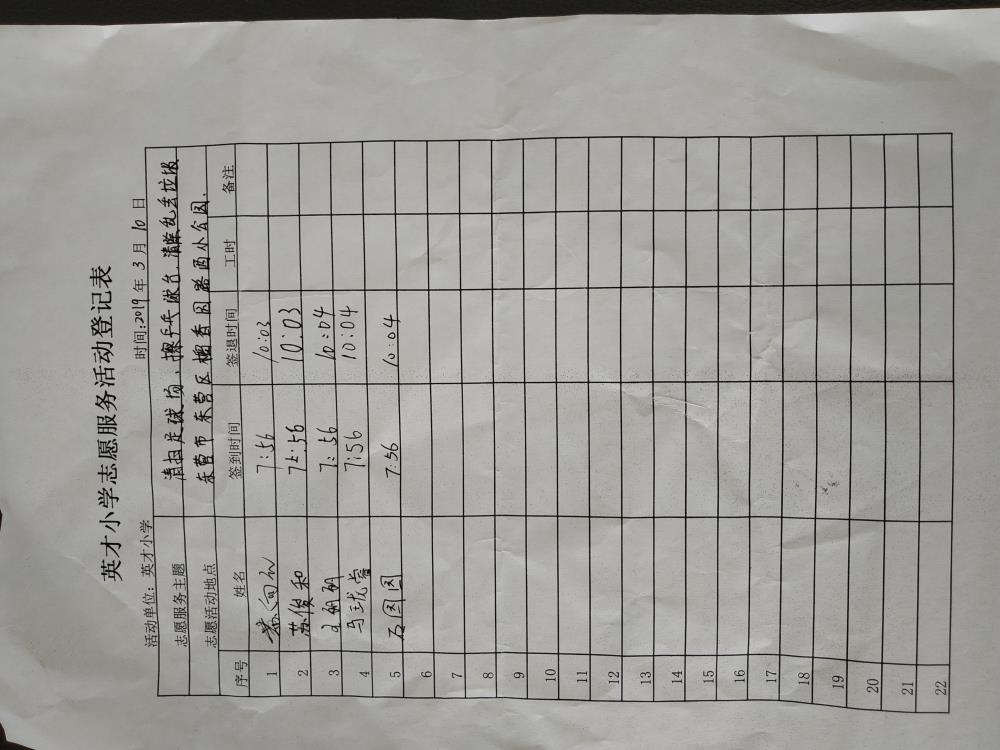 英才小学志愿服务活动登记表
活动单位：英才小学 时间:2019年3月10日
志愿服务主题 清扫足球场、擦乒乓球台、清除乱丢垃圾
志愿活动地点 东营市东营区 西小公园.
序号 姓名 签到时间 签退时间 工时 备注
1 7:56 10:03
2 苏俊和 7:56 10:03
3 7:56 10:04
4 马珑睿 7:56 10:04
5 石图图 7:56 10:04
6
7
8
9
10
11
12
13
14
15
16
17
18
19
20
21
22